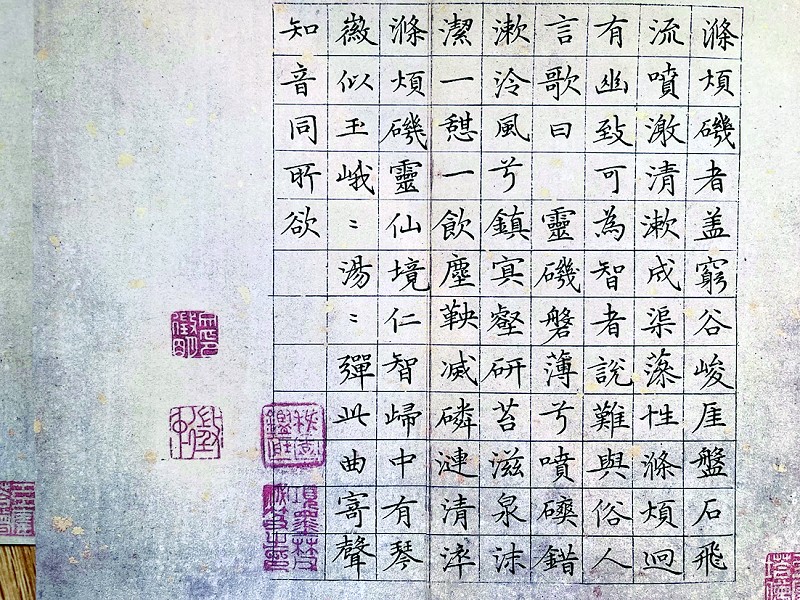 滌煩磯者盖窮谷峻厓盤石飛
流噴激清漱成渠藻性滌煩迥
有幽致可為智者說難與俗人
言歌曰　靈磯磐薄兮噴磢錯
漱泠風兮鎮冥壑研苔滋泉沫
潔一憇一飲塵鞅减磷漣清淬
滌煩磯靈仙境仁智歸中有琴
徽似玉峨〻湯〻彈此曲寄聲
知音同所欲